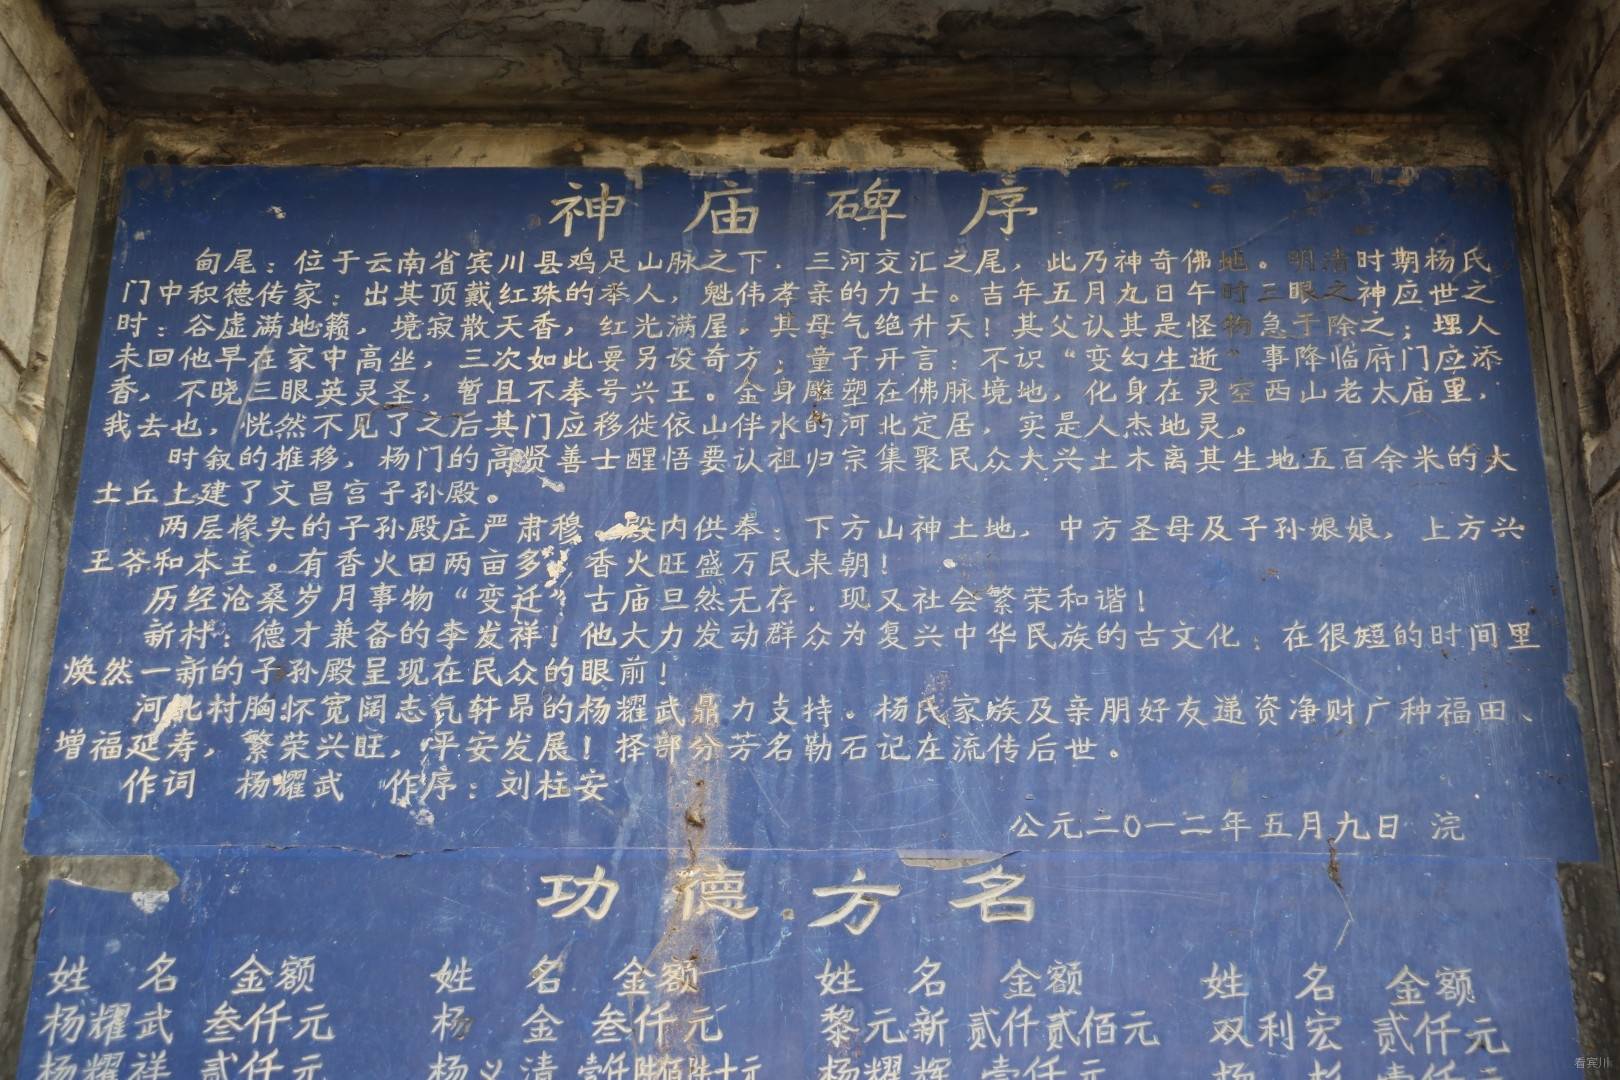 神庙碑序
甸尾：位于云南省宾川县鸡足山脉之下，三河交汇之尾，此乃神奇佛地。明清时期杨氏
门中积德传家：出其顶戴红珠的举人，魁伟孝亲的力士。吉年五月九日午时三眼之神应世之
时：谷虚满地籁，境寂散天香，红光满屋，其母气绝升天！其父认其是怪物急于除之；埋人
未回他早在家中高坐，三次如此要另设奇方，童子开言：不识“变幻生逝”事降临府门应添
香，不晓三眼英灵圣，暂且不奉号兴王。金身雕塑在佛脉境地，化身在灵空西山老太庙里，
我去也，恍然不见了之后其门应移徙依山伴水的河北定居，实是人杰地灵。
时叙的推移，杨门的高贤善士醒悟要认祖归宗集聚民众大兴土木离其生地五百余米的大
土丘上建了文昌宫子孙殿。
两层椽头的子孙殿庄严肃穆。殿内供奉：下方山神土地，中方圣母及子孙娘娘，上方兴
王爷和本主。有香火田两亩多，香火旺盛万民来朝！
历经沧桑岁月事物“变迁”古庙旦然无存，现又社会繁荣和谐！
新村：德才兼备的李发祥！他大力发动群众为复兴中华民族的古文化；在很短的时间里
焕然一新的子孙殿呈现在民众的眼前！
河北村胸怀宽阔志气轩昂的杨耀武鼎力支持。杨氏家族及亲朋好友递资净财广种福田、
增福延寿，繁荣兴旺，平安发展！择部分芳名勒石记在流传后世。
作词 杨耀武 作序：刘柱安
公元二0一二年五月九日 浣
功德方名
姓名 金额 姓名 金额 姓名 金额 姓名 金额
杨耀武 叁仟元 杨金 叁仟元 黎元新 贰仟贰佰元 双利宏 贰仟元
杨耀祥 贰仟元 杨义清 杨耀辉 壹仟元 杨
看宾川